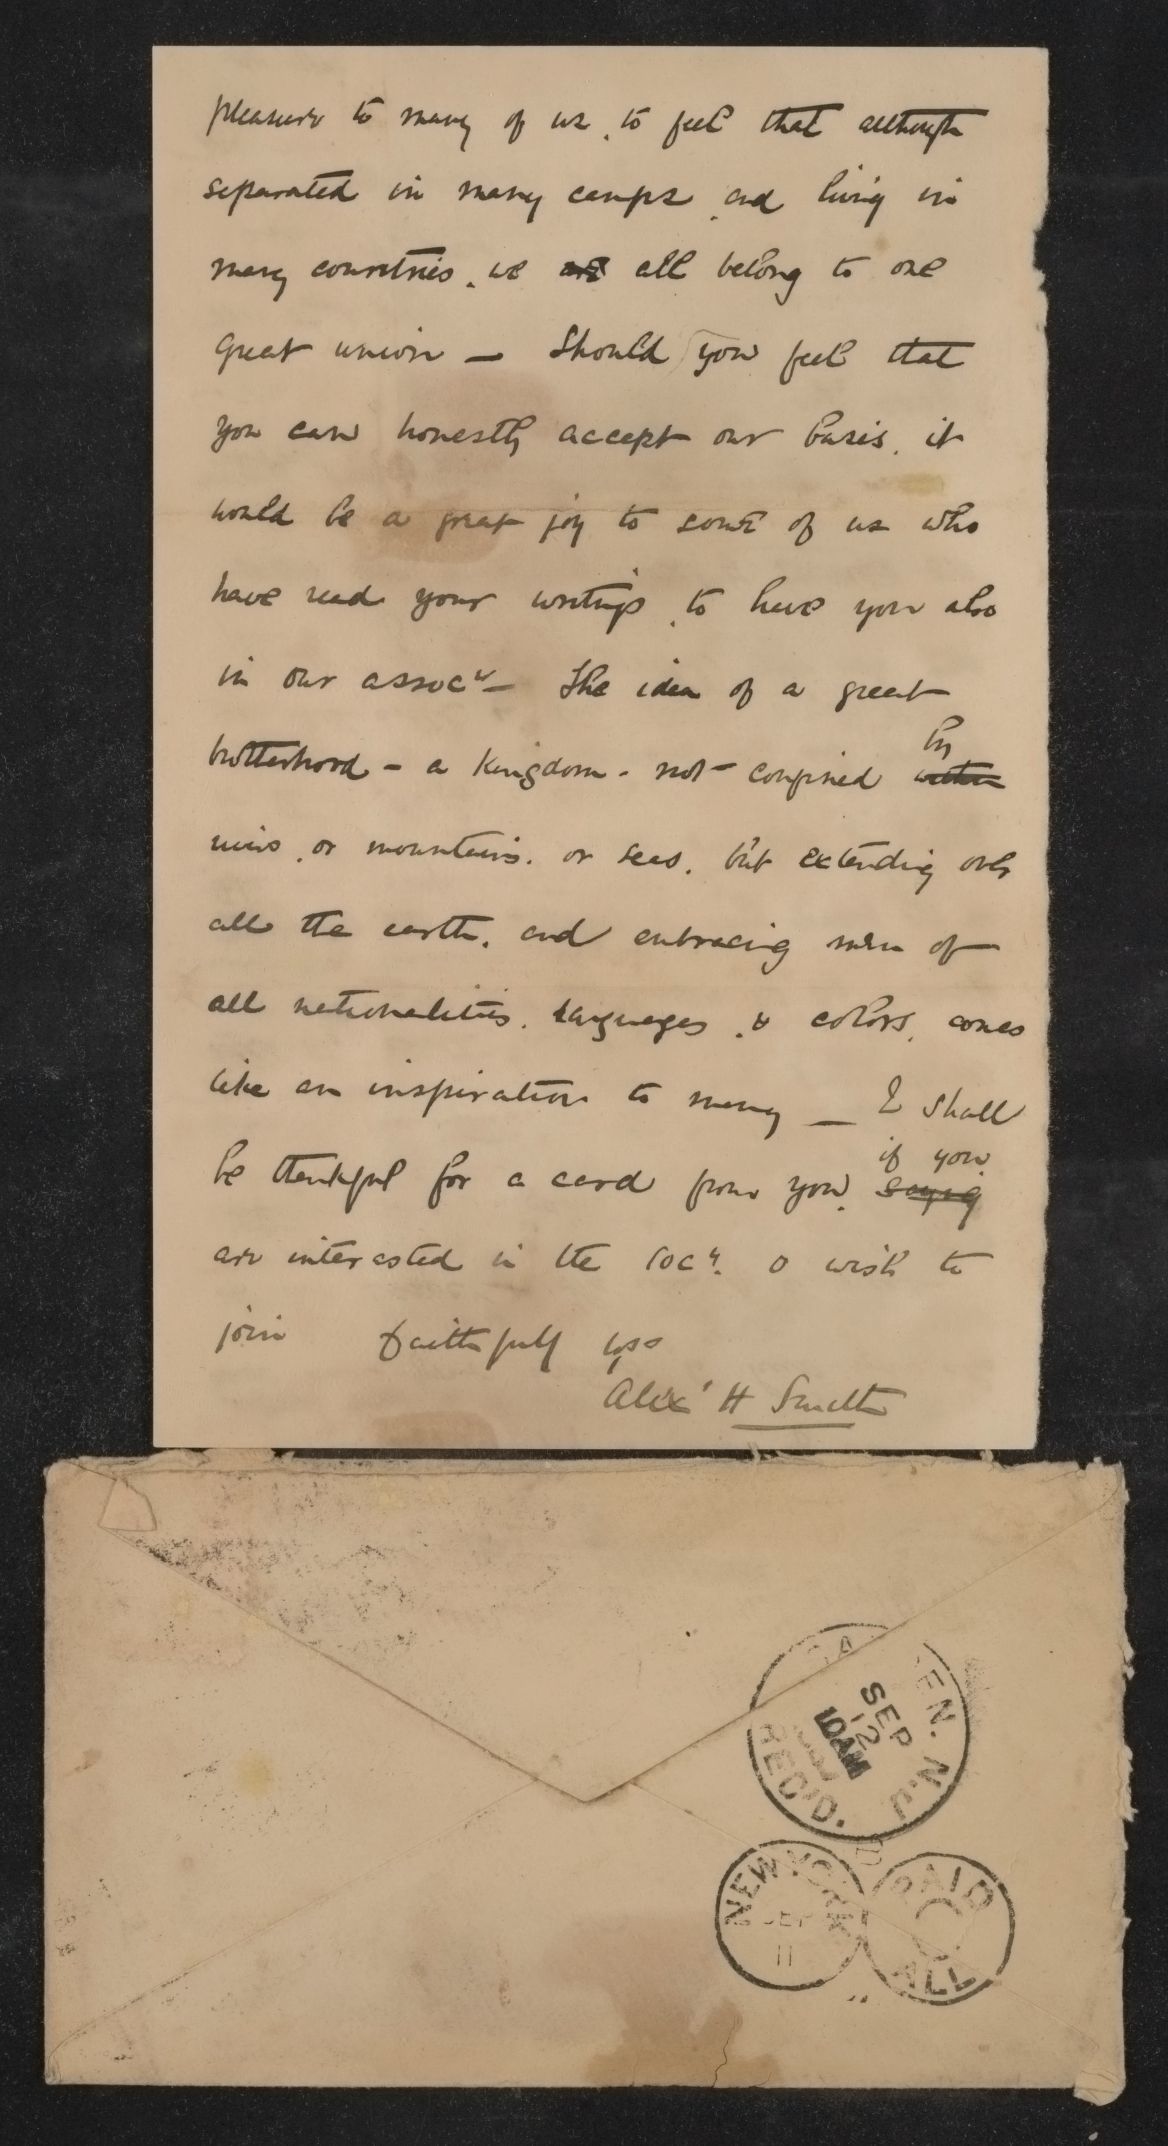 pleasure to many of us, to feel that although
separated in many camps, and living in
many countries, we are all belong to one
great union — Should you feel that
you can honestly accept our basis, it
would be a great joy to some of us who
have read your writings, to have you also
in our assocn — The idea of a great
brotherhood – a kingdom – not confined within by
or mountains, or seas, but extending over
all the earth, and embracing men of
all nationalities, languages, & colors, comes
like an inspiration to many — I shall
be thankful for a card from you, saying if you
are interested in the Socy. & wish to
join Faithfully yrs
Alexr H Smith
CAMDEN. N.J.
SEP
12
10AM
REC'D.
NEW YORK
SEP
11
PAID
ALL